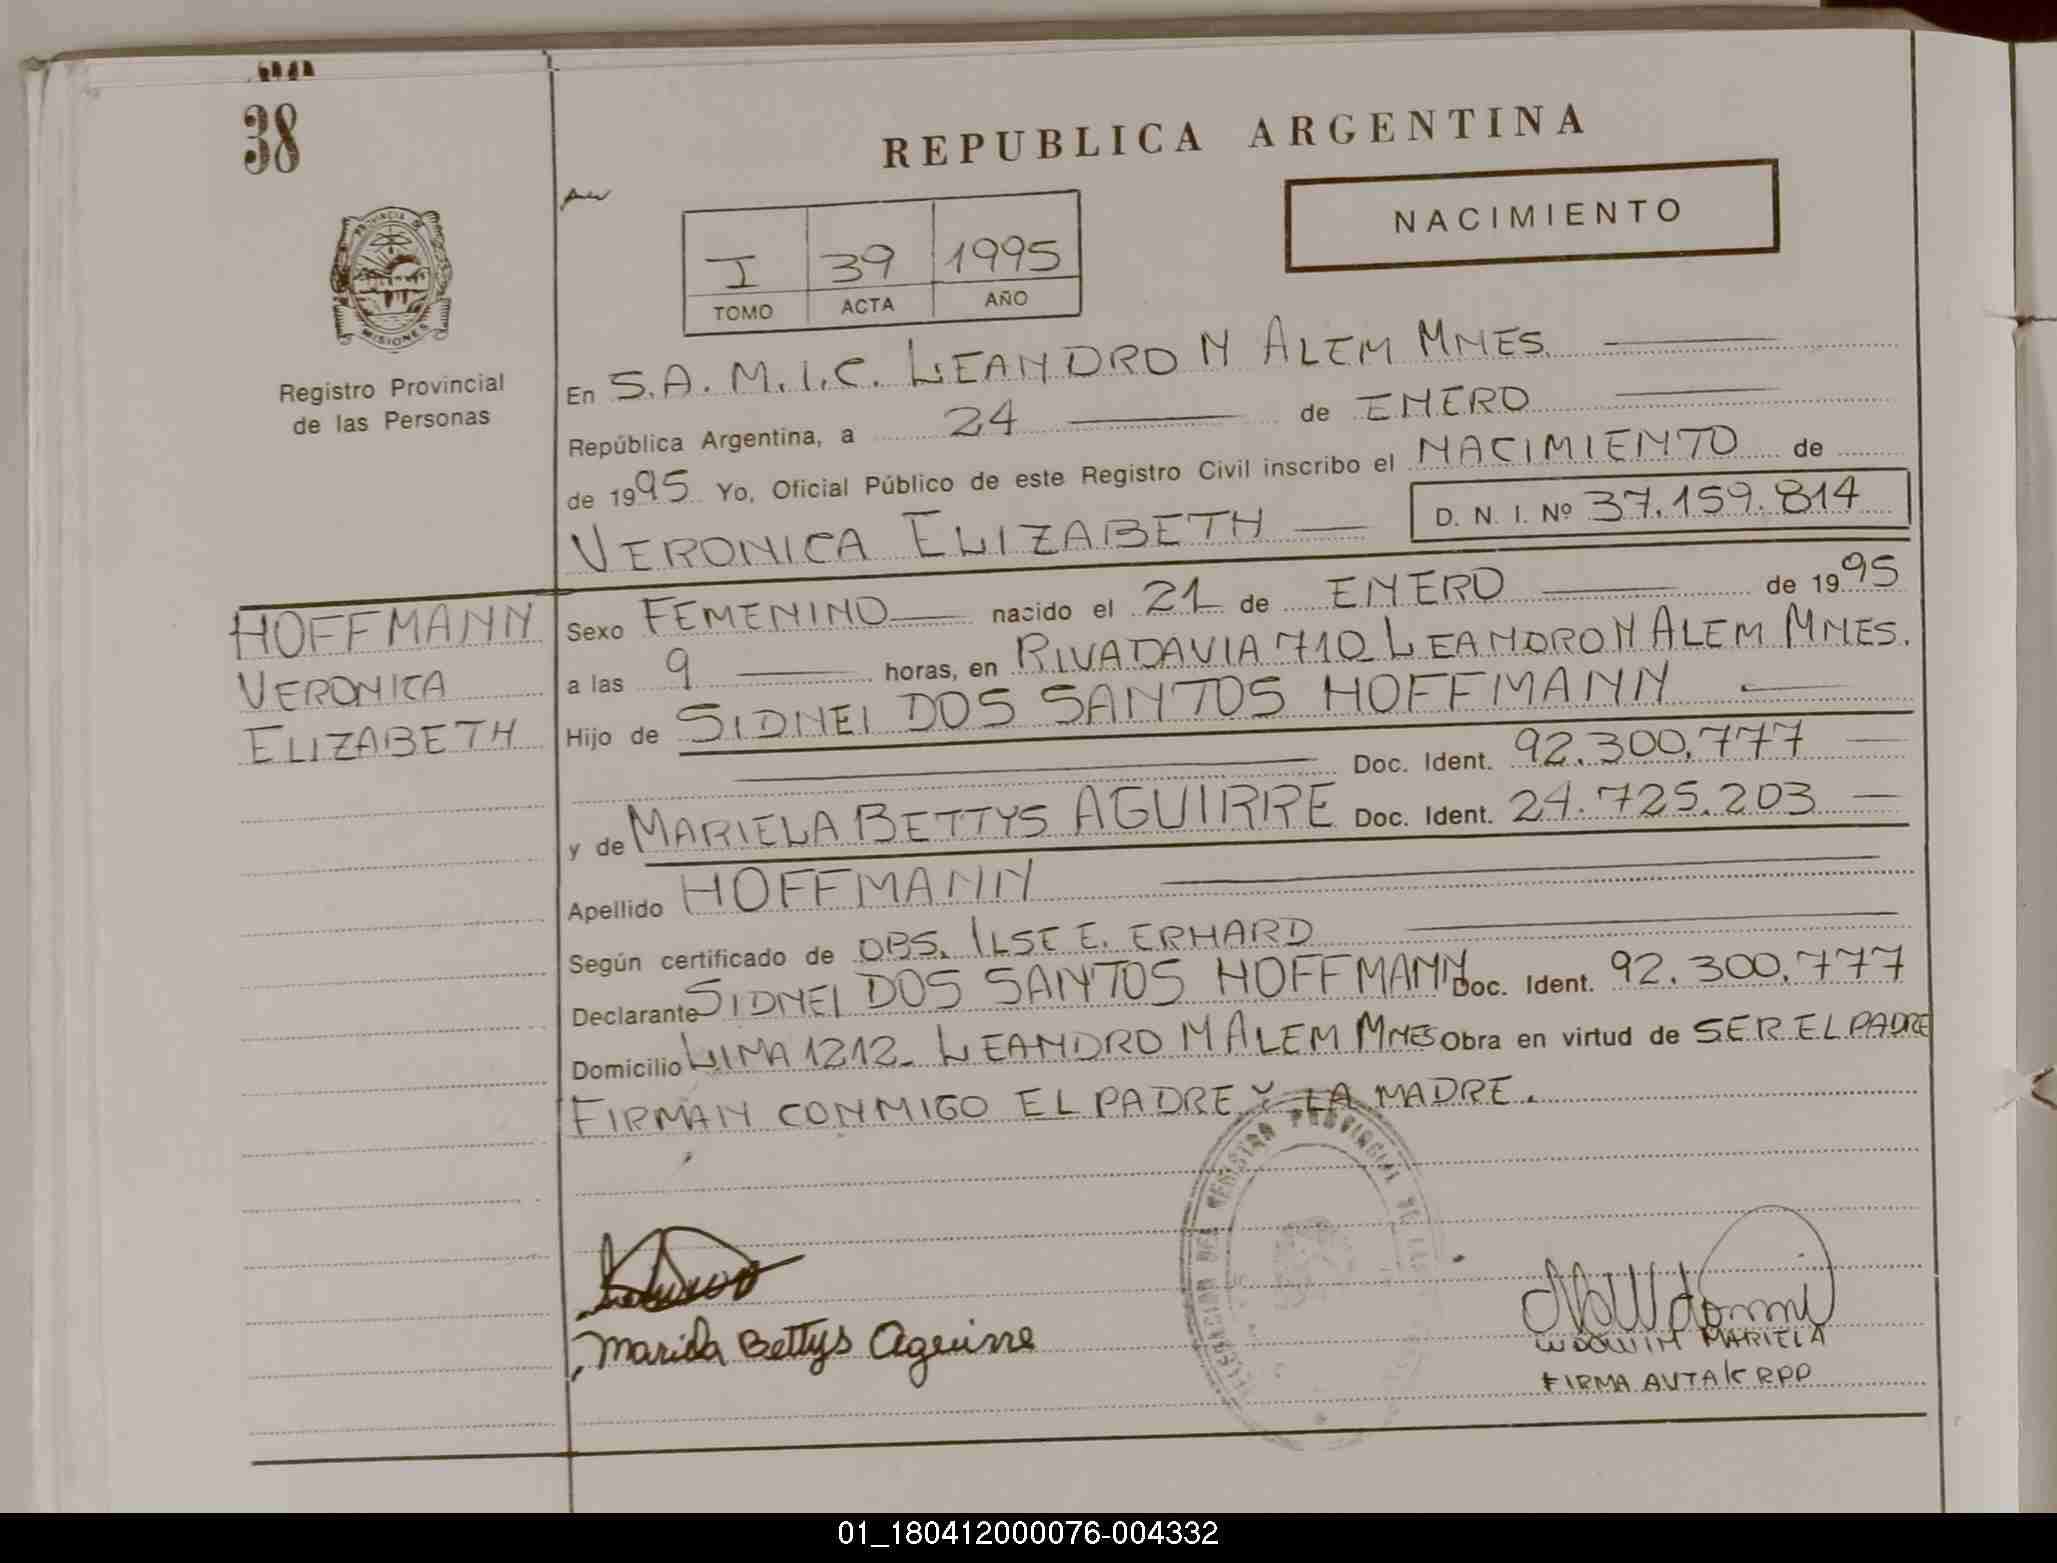 38
REPUBLICA ARGENTINA
NACIMIENTO
I 39 1995
TOMO ACTA AÑO
PROVINCIA DE
MISIONES
Registro Provincial
de las Personas
En S.A.M.I.C. LEANDRO N ALEM MNES.
República Argentina, a 24 de ENERO
de 1995 Yo, Oficial Público de este Registro Civil inscribo el NACIMIENTO de
VERONICA ELIZABETH D. N. I. Nº 37.159.814
HOFFMANN
VERONICA
ELIZABETH
Sexo FEMENINO nacido el 21 de ENERO de 1995
a las 9 horas, en RIVADAVIA 710 LEANDRO N ALEM MNES.
Hijo de SIDNEI DOS SANTOS HOFFMANN
Doc. Ident. 92.300.777
y de MARIELA BETTYS AGUIRRE Doc. Ident. 24.725.203
Apellido HOFFMANN
Según certificado de OBS. ILSE E. ERHARD
Declarante SIDNEI DOS SANTOS HOFFMANN Doc. Ident. 92.300.777
Domicilio LIMA 1212- LEANDRO N ALEM MNES Obra en virtud de SER EL PADRE
FIRMAN CONMIGO EL PADRE Y LA MADRE.
DELEGACION DEL REGISTRO PROVINCIAL
Mariela Bettys Aguirre
MARIELA
FIRMA AUTA K RPP
01_180412000076-004332